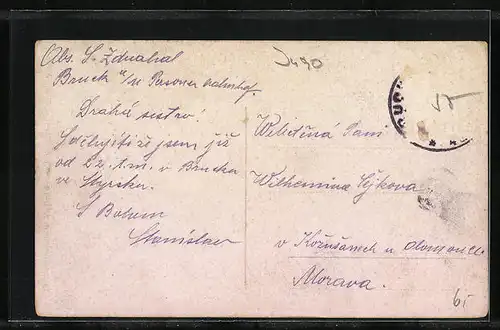 Abs. S. Zdvahal
Bruck a/M Personen bahnhof.
Drahá sestro!
Sděluji ti že jsem již
od 22. t.m. v Brucku
ve Styrsku.
S Bohem
Stanislav
Velectěná Paní
Wilhemina Sýkova
v Kožušanech u Olomouce
Morava.
6.-